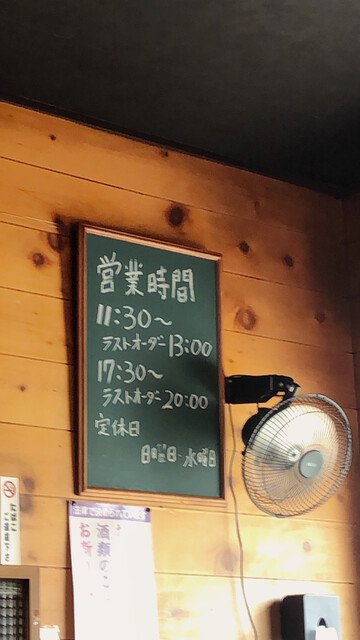 営業時間
11:30～
ラストオーダー13:00
17:30～
ラストオーダー20:00
定休日
日曜日・水曜日
たばこ
ご遠慮下さい
酒類の
お断り